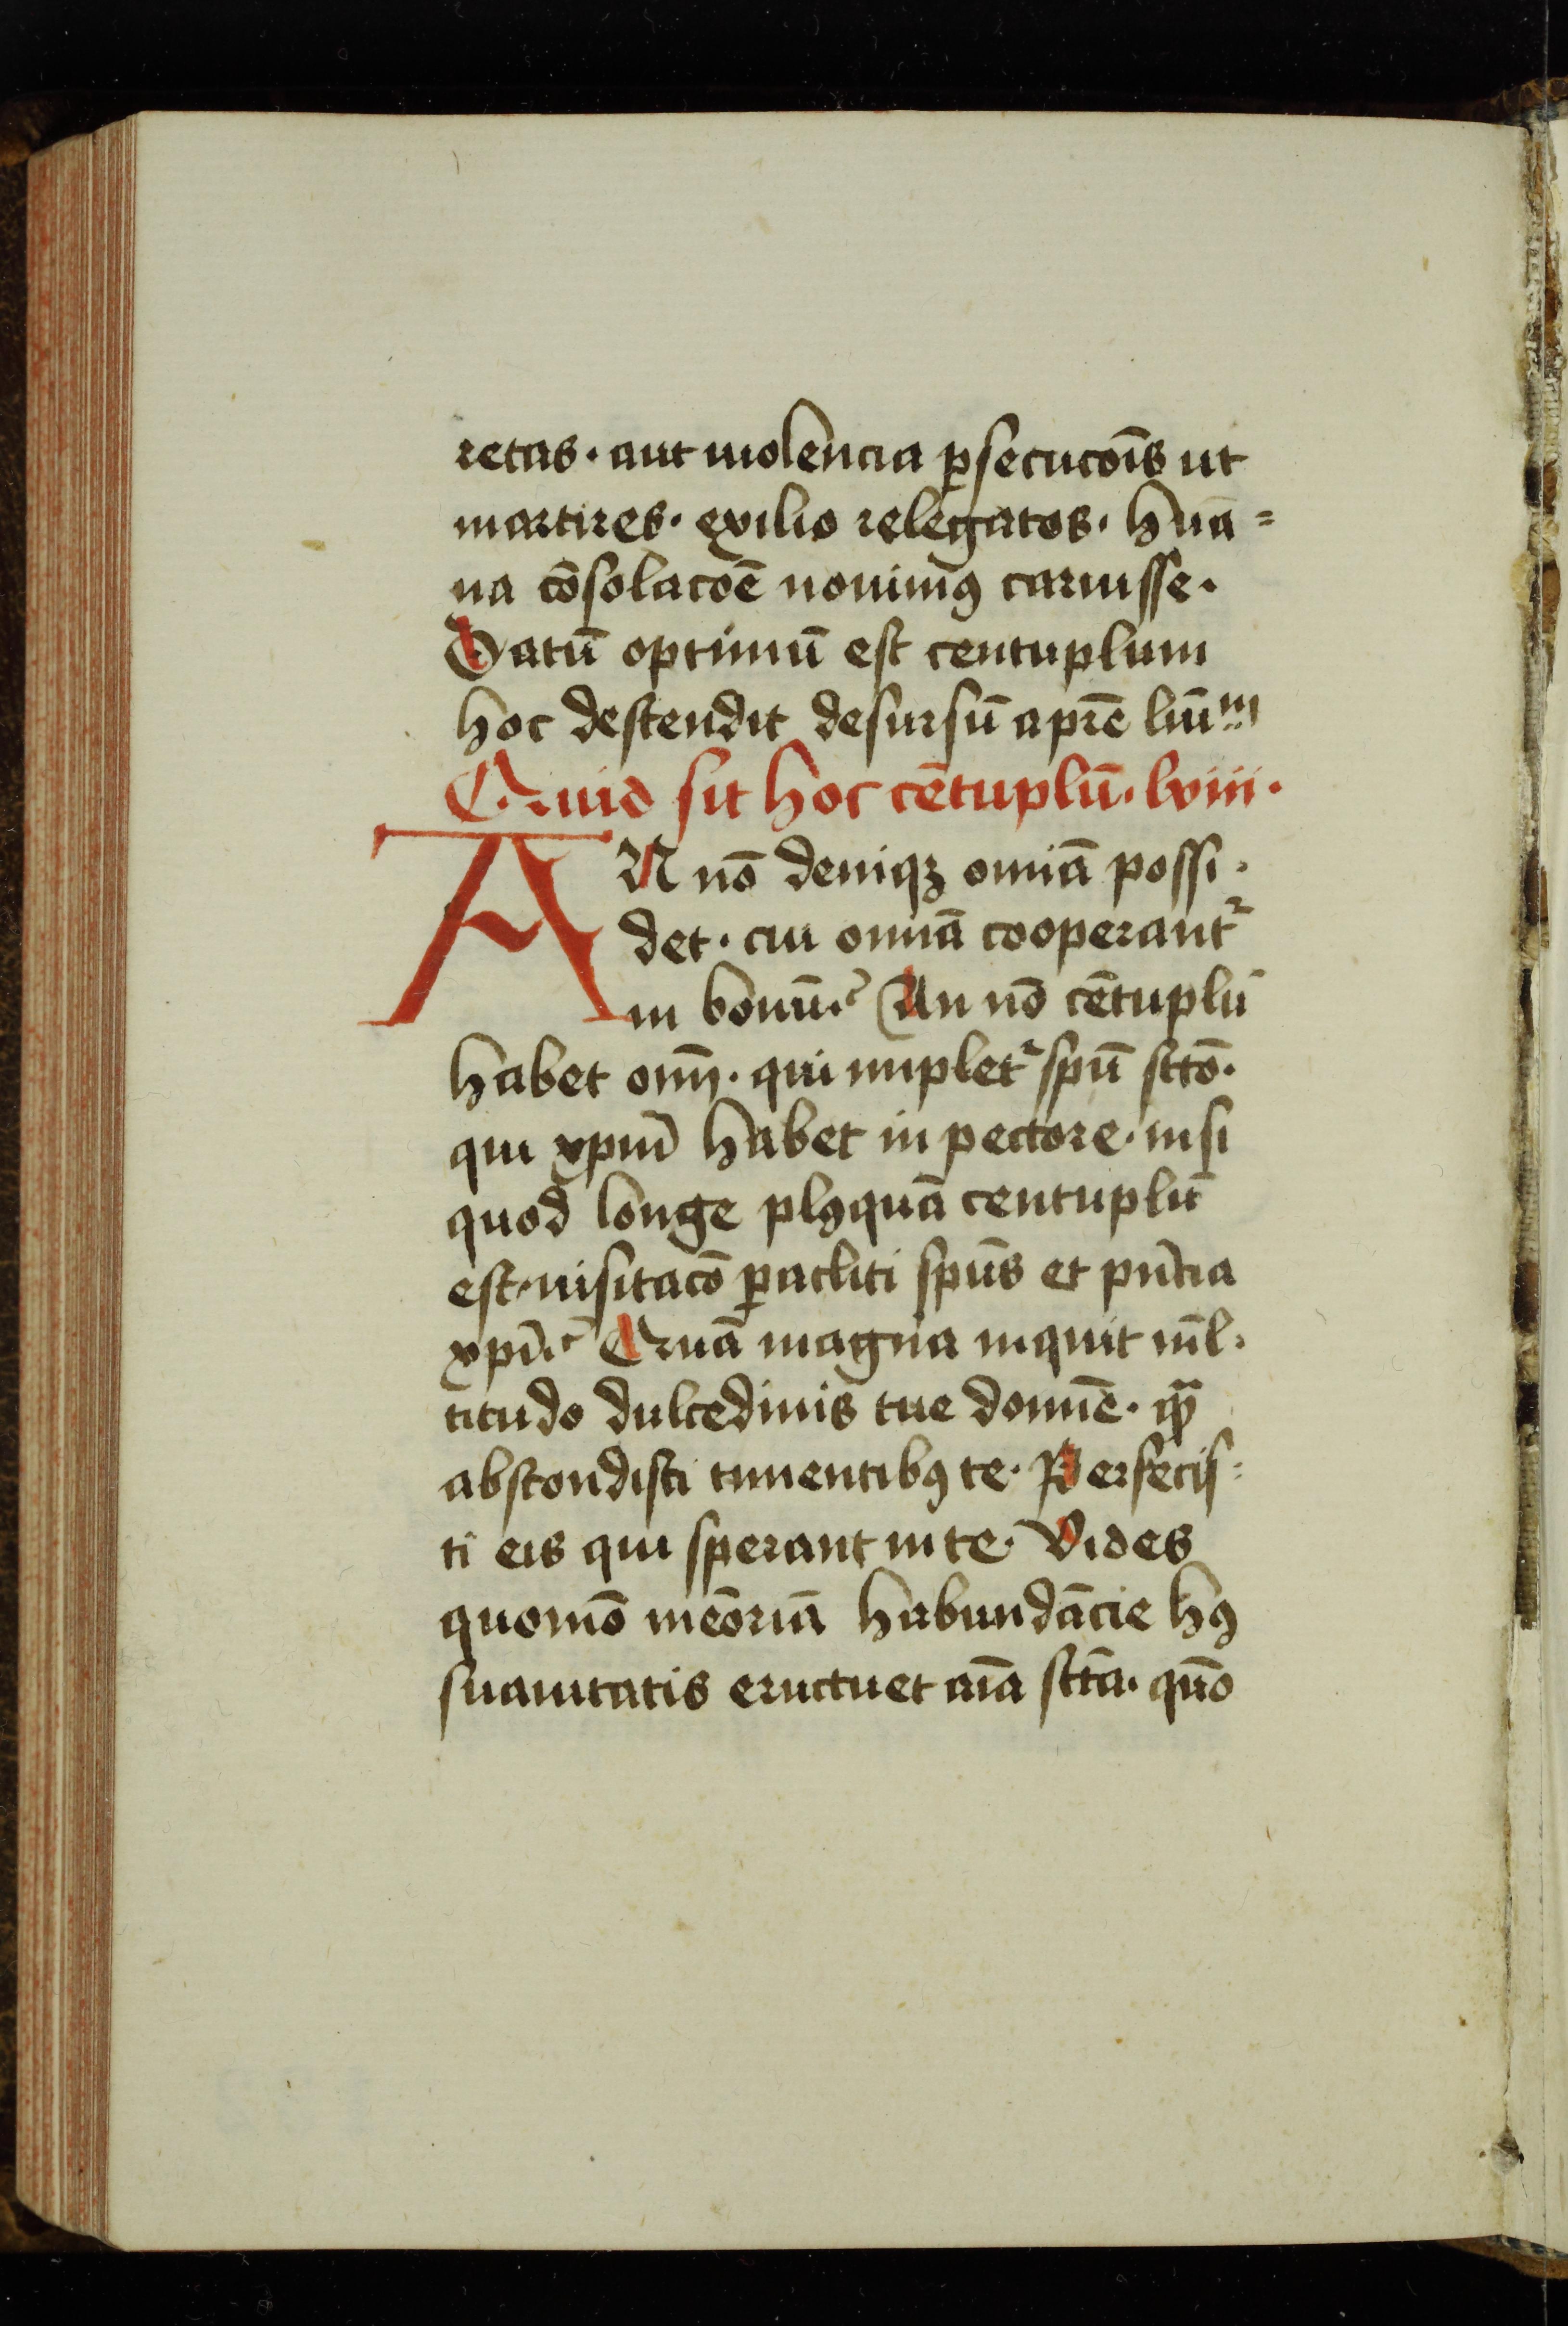 retas · aut uiolencia ꝑsecucoīs ut
martires · exilio relegatos · huā=
na cōsolacoē nouimꝰ caruisse ·
Datū optimū est centuplum
hoc descendit desursū a pr̄e lūm
Quid sit hoc cētuplū · lviii ·
AN nō deniqꝫ omīa possi ·
det · cui omīa cooperantᷣ
in bonū? An nō cētuplū
habet om̄ · qui impletᷣ spū sctō ·
qui xpm̄ habet in pectore · nisi
quod longe plꝰquā centuplū
est · uisitacō ꝑacliti spūs et pn̄cia
xpī? Quā magna inquit ml̄ ·
titudo dulcedinis tue domīe · qua
abscondisti timentibꝰ te · Perfecis=
ti eis qui sperant in te · Vides
quomō meōriā habundācie hꝰ
suauitatis eructuet aīa sctā · quō